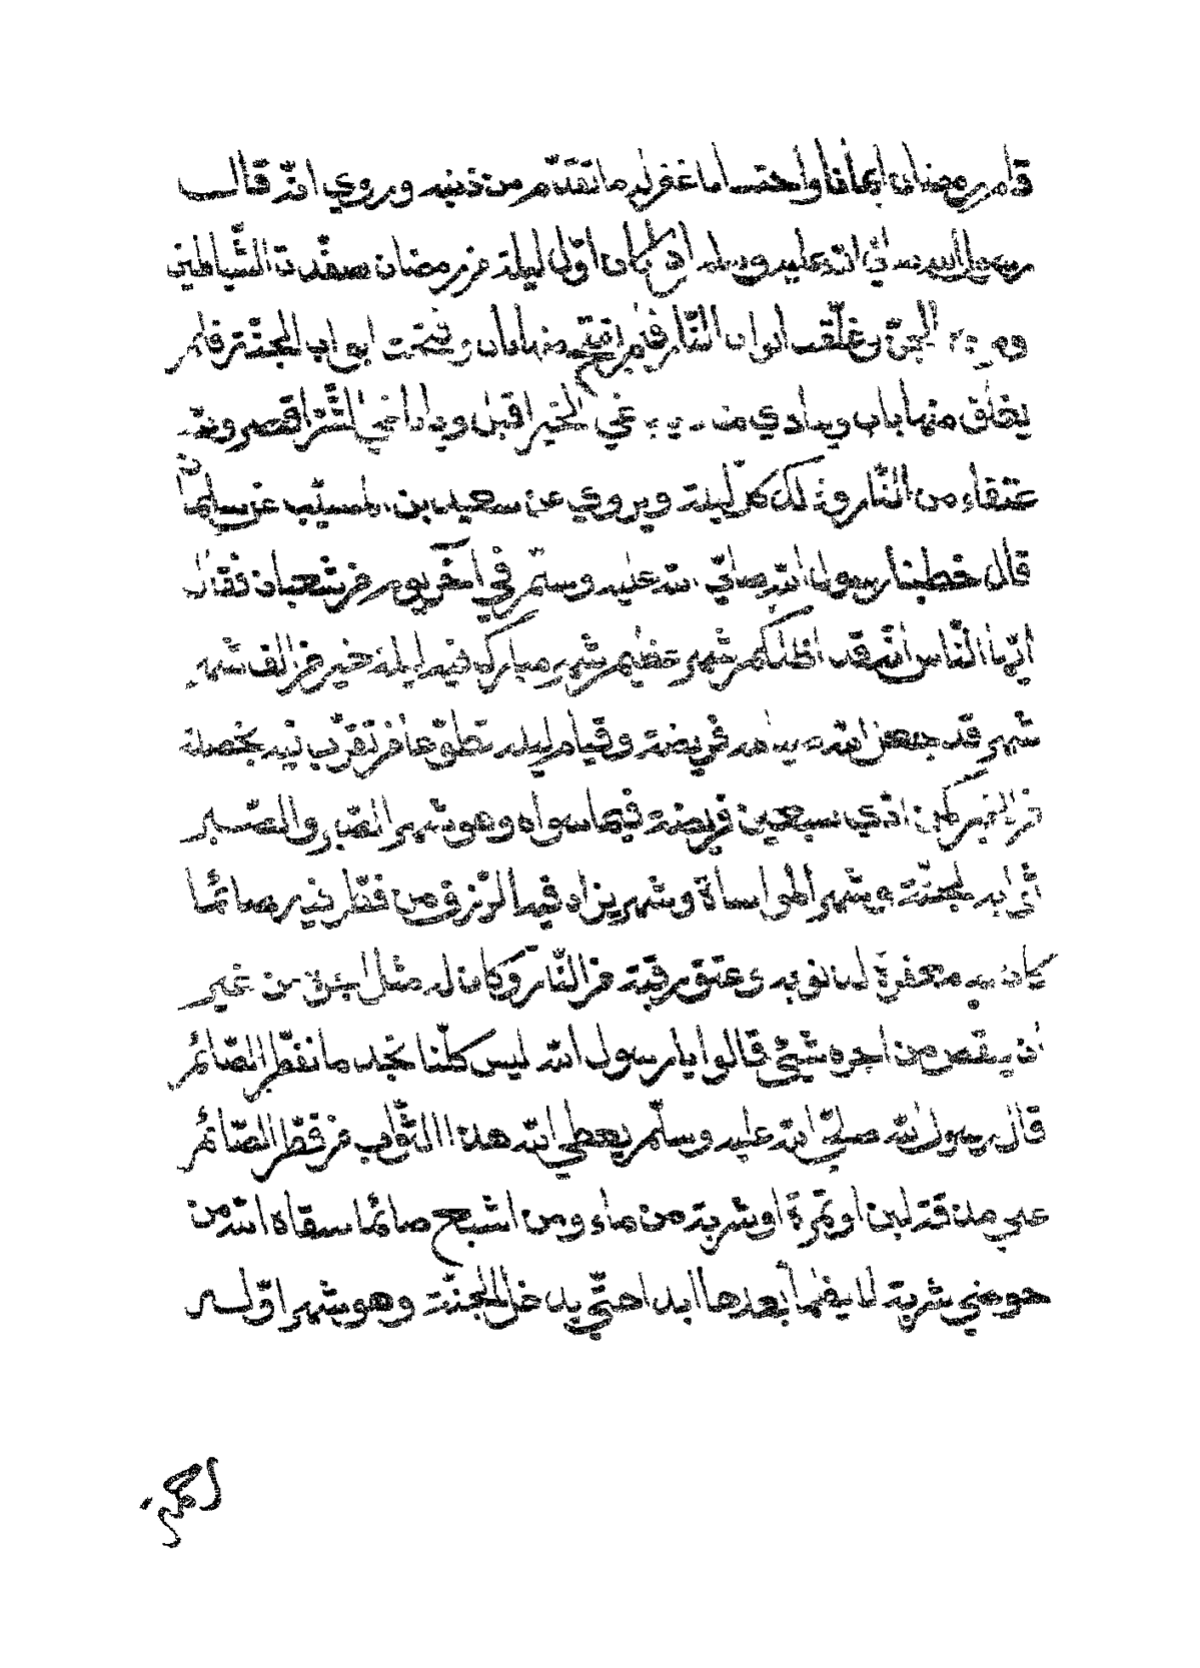 قام رمضان ايمانا واحتسابا غفر له ما تقدّم من ذنبه وروي انّه قال
رسول الله صلّي الله عليه وسلم اذا كان اوّل ليلة من رمضان صفّدت الشّياطين
الجنّ وغلّقت ابواب النّار فلم يفتح منها باب وفتحت ابواب الجنّة فلم
يغلق منها باب وينادي مناد يا باغي الخير اقبل ويا باغي الشّرّ اقصر ولله
عتقاء من النّار وذلك كلّ ليلة ويروي عن سعيد بن المسيّب عن سلمان
قال خطبنا رسول الله صلّي الله عليه وسلّم في آخر يوم من شعبان فقال
ايّها النّاس انّه قد اظلّكم شهر عظيم شهر مبارك فيه ليلة خير من الف شهر
شهر قد جعل الله صيامه فريضة وقيام ليله تطوّعا من تقرّب فيه بخصلة
من الخير كمن ادّي سبعين فريضة فيما سواه وهو شهر الصّبر والصّبر
ثوابه الجنّة وشهر المواساة وشهر يزاد فيه الرّزق من فطّر فيه صائما
كان له مغفرة لذنوبه وعتق رقبة من النّار وكان له مثل اجره من غير
ان ينقص من اجره شيئ قالوا يا رسول الله ليس كلّنا نجد ما نفطّر الصّائم
قال رسول الله صلّي الله عليه وسلّم يعطي الله هذا الثّواب من فطّر الصّائم
علي مذقة لبن او تمرة او شربة من ماء ومن اشبع صائما سقاه الله من
حوضي شربة لا يظمأ بعدها ابدا حتّي يدخل الجنّة وهو شهر اوّله